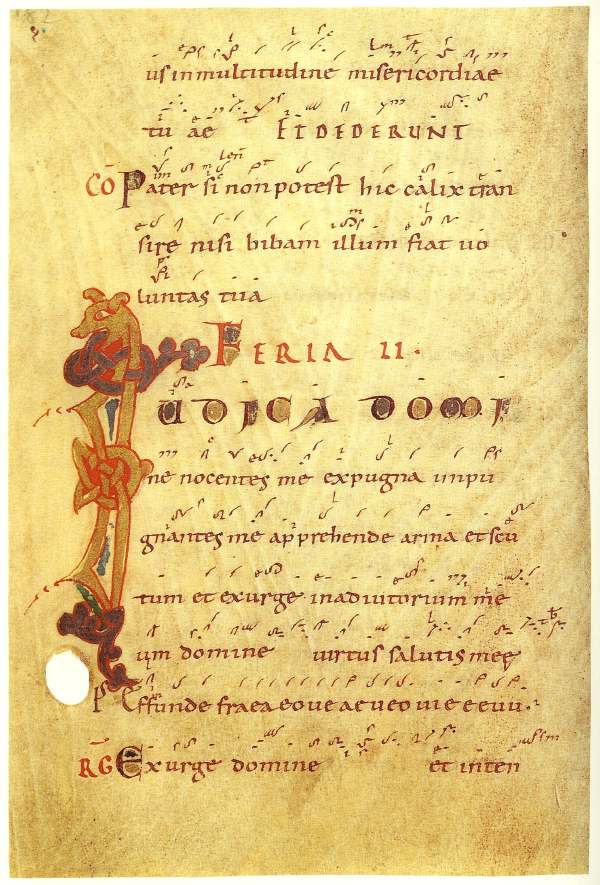 us in multitudine misericordiae
tu ae ET DEDERUNT
CO Pater si non potest hic calix tran
sire nisi bibam illum fiat uo
luntas tua
FERIA II.
IUDICA DOMI
ne nocentes me expugna inpu
gnantes me apprehende arma et scu
tum et exurge in adiutorium me
um domine uirtus salutis meę
PS Effunde fraea
RG Exurge domine et inten